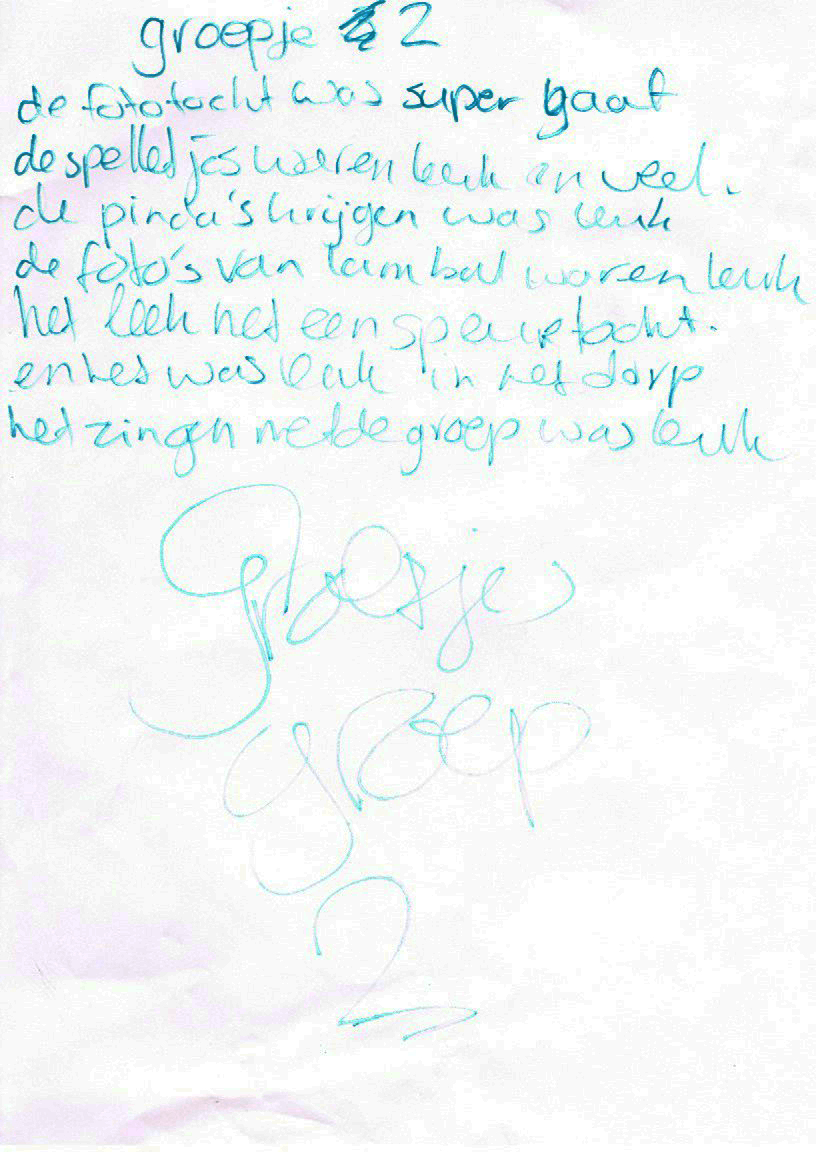 groepje 2
de fototocht was super gaaf
de spelletjes waren leuk en veel.
de pinda's krijgen was leuk
de foto's van waren leuk
het leek net een speurtocht.
en het was leuk in het dorp
het zingen met de groep was leuk
Groetjes
groep
2